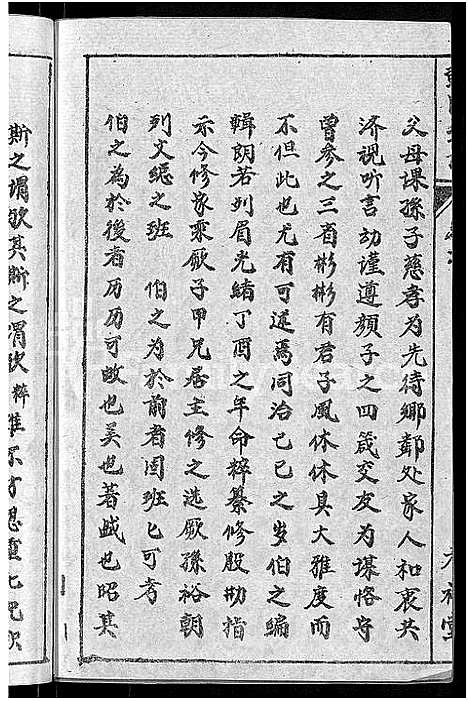 父母课孙子慈孝为先待鄉鄰处家人和衷共
济視听言动谨遵顏子之四箴交友为謀恪守
曾参之三省彬彬有君子風休休具大雅度而
不但此也尤有可述焉同治己巳之岁伯之編
輯朗若列眉光緒丁酉之年命粹纂修殷勤指
示今修家乘厥子甲兄居主修之选厥孫裕朝
列文緦之班　伯之为於前者固班匕可考
伯之為於後者历历可㪯也美也著歟也昭其
斯之謂欤其斯之谓欤粹雖不才思重匕兄